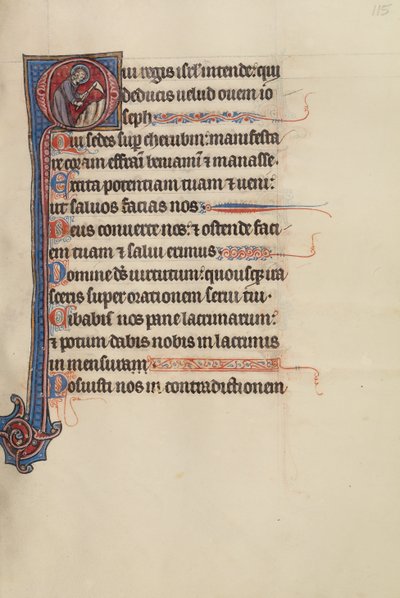 115
Qui regis isrl intende: qui
deducis uelud ouem io
seph
Qui sedes sup cherubin: manifesta
re coram effraim beniamin & manasse.
Excita potentiam tuam & ueni:
ut saluos facias nos
Deus conuerte nos: & ostende faci
em tuam & salui erimus
Domine ds uirtutum: quousq; ira
sceris super orationem serui tui.
Cibabis nos pane lacrimarum:
& potum dabis nobis in lacrimis
in mensuram
Posuisti nos in contradictionem